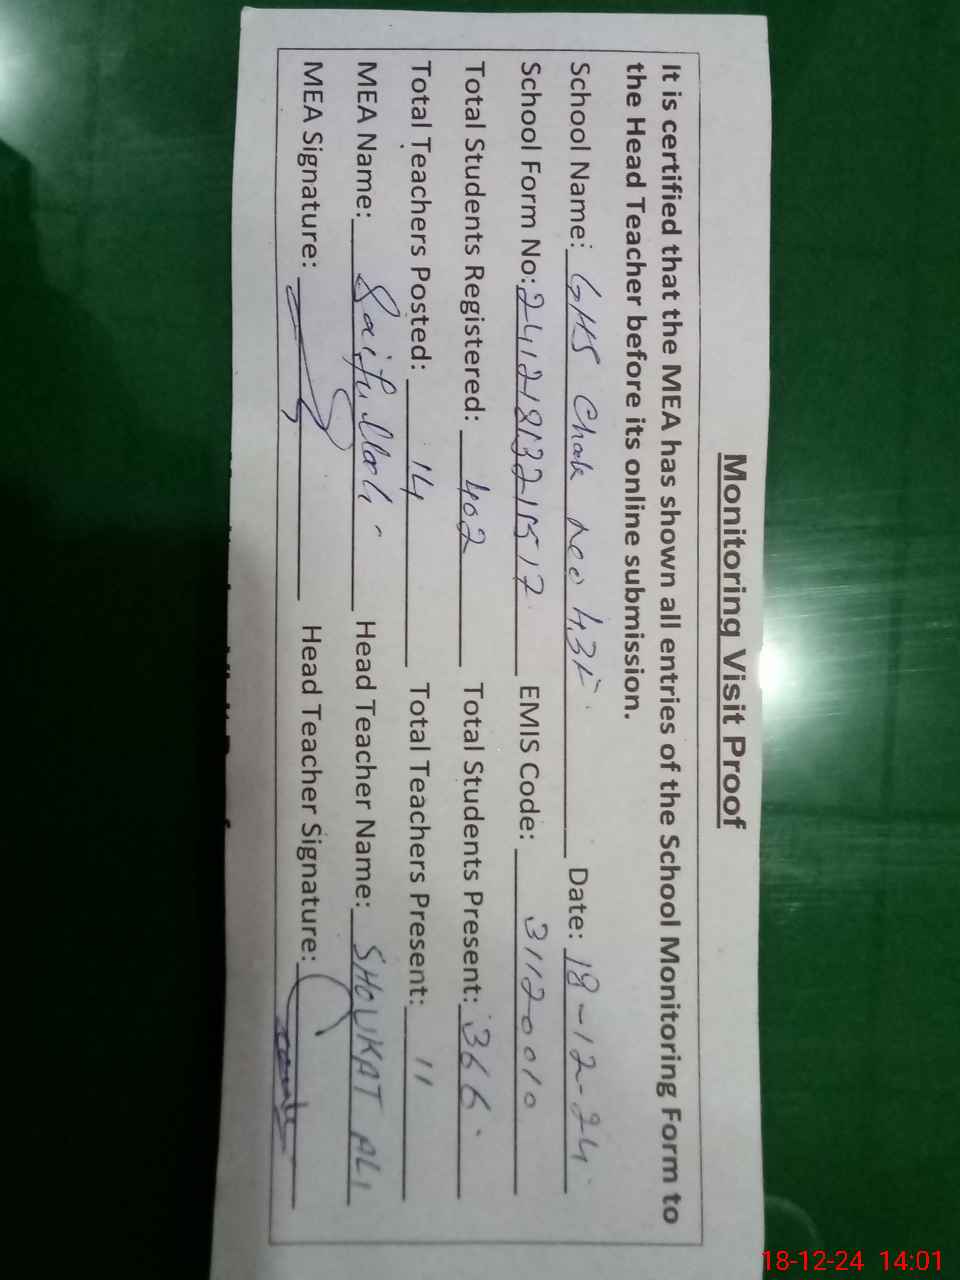 Monitoring Visit Proof
It is certified that the MEA has shown all entries of the School Monitoring Form to
the Head Teacher before its online submission.
School Name: GHS Chak no 43 Date: 18-12-24
School Form No: EMIS Code: 31120010
Total Students Registered: 402 Total Students Present: 366
Total Teachers Posted: 14 Total Teachers Present: 11
MEA Name: Saifullah Head Teacher Name: SHOUKAT ALI
MEA Signature: Head Teacher Signature:
18-12-24 14:01